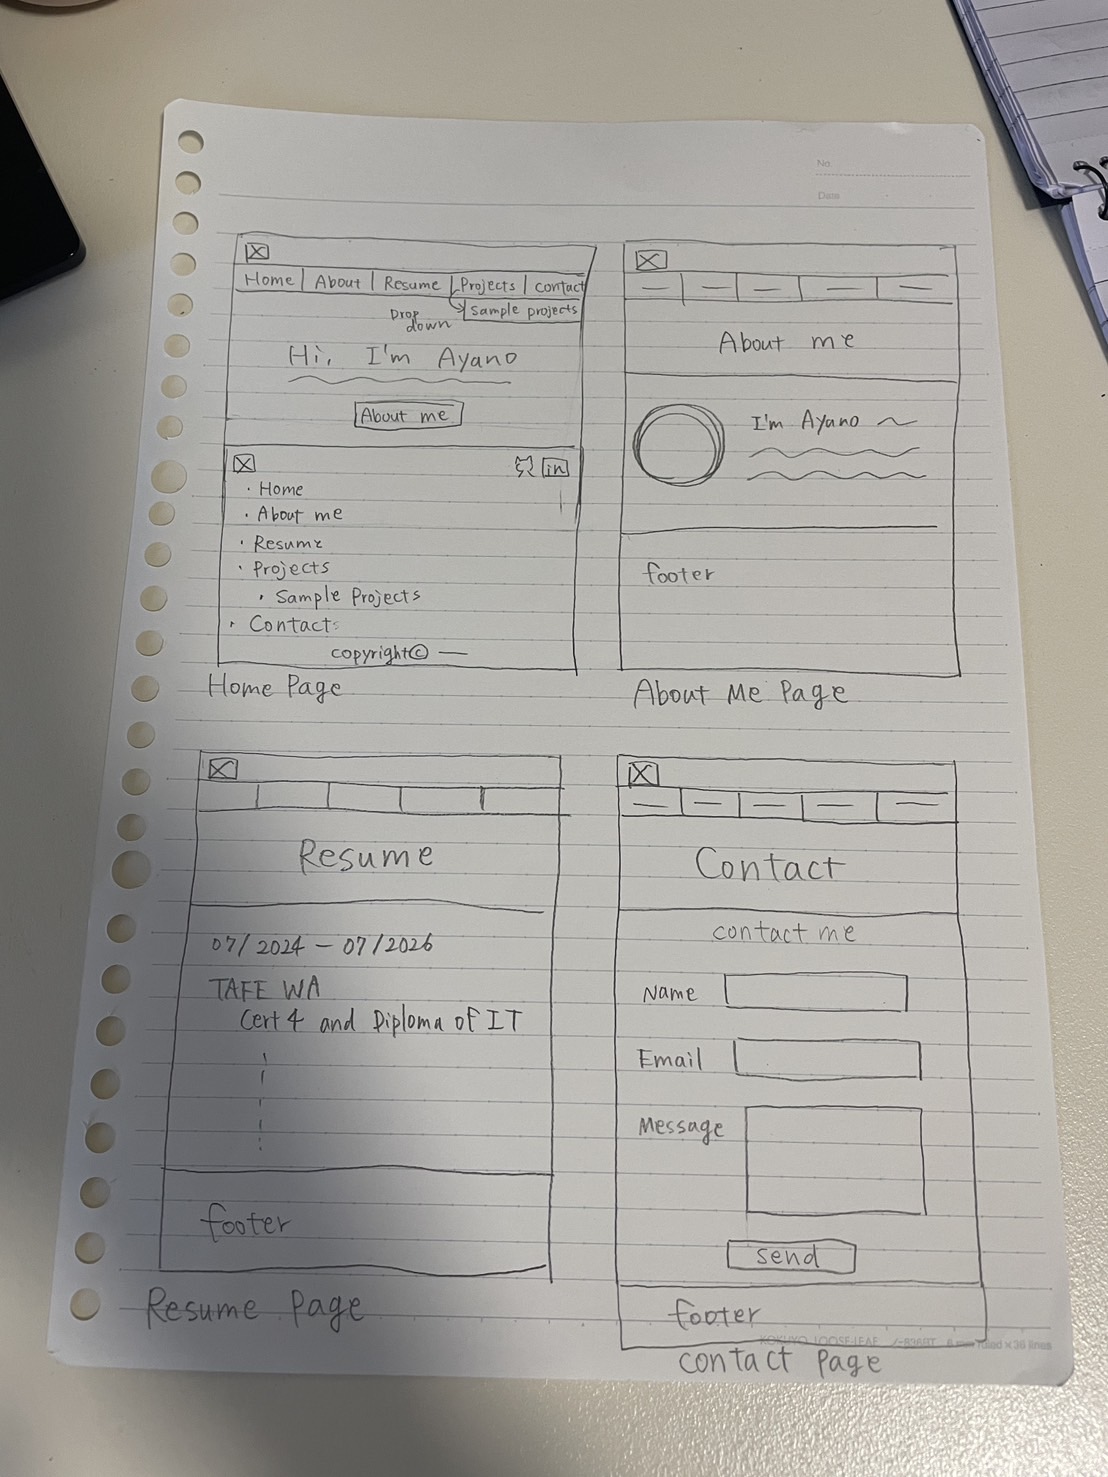 No.
Date
Home About Resume Projects contact
Drop down
Sample projects
Hi, I'm Ayano
About me
in
· Home
· About me
· Resume
· Projects
· Sample Projects
· Contacts
copyright©
Home Page
About me
I'm Ayano
footer
About Me Page
Resume
07/2024 - 07/2026
TAFE WA
Cert 4 and Diploma of IT
footer
Resume Page
Contact
contact me
Name
Email
Message
send
footer
KOKUYO LOOSE-LEAF ruled × 36 lines
contact Page